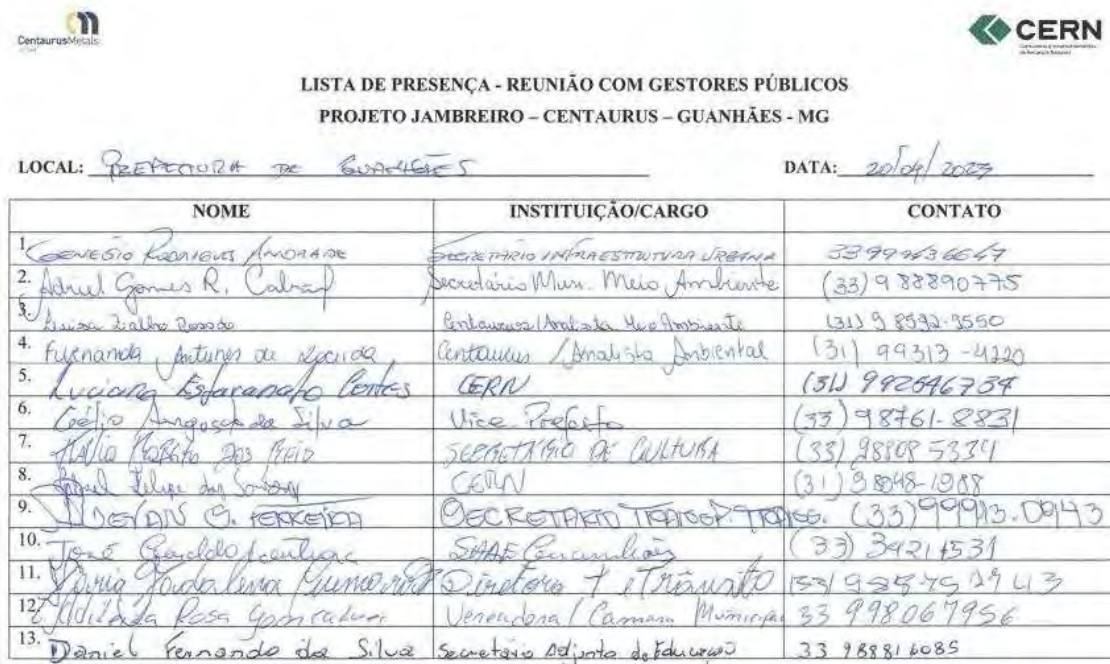 CentaurusMetals
CERN
LISTA DE PRESENÇA - REUNIÃO COM GESTORES PÚBLICOS
PROJETO JAMBREIRO – CENTAURUS – GUANHÃES - MG
LOCAL: PREFEITURA DE GUANHÃES DATA: 20/04/2023
NOME INSTITUIÇÃO/CARGO CONTATO
1. GENESIO RODRIGUES ANDRADE SECRETÁRIO INFRAESTRUTURA URBANA
2. Adriel Gomes R. Cabral Secretário Mun. Meio Ambiente (33) 9 88890775
3. Centaurus/Analista Meio Ambiente (31) 9 8592-9550
4. Fernanda Antunes de Centaurus / Analista Ambiental (31) 99313-4220
5. Luciana Cortes CERN (31) 992646734
6. da Silva Vice Prefeito (33) 98761-8831
7. Flávio dos SECRETÁRIO DE CULTURA (33) 98808 5334
8. Felipe dos CERN (31) 9 8848-1988
9. FERREIRA SECRETARIO TRANSP. (33) 99913.0943
10. José Geraldo SAAE Guanhães (33) 34211531
11. Maria Diretora
12. Rosa Gonçalves Vereadora / Camara Municipal 33 998067956
13. Daniel Fernando da Silva Secretário Adjunto de Educação 33 98881 6085